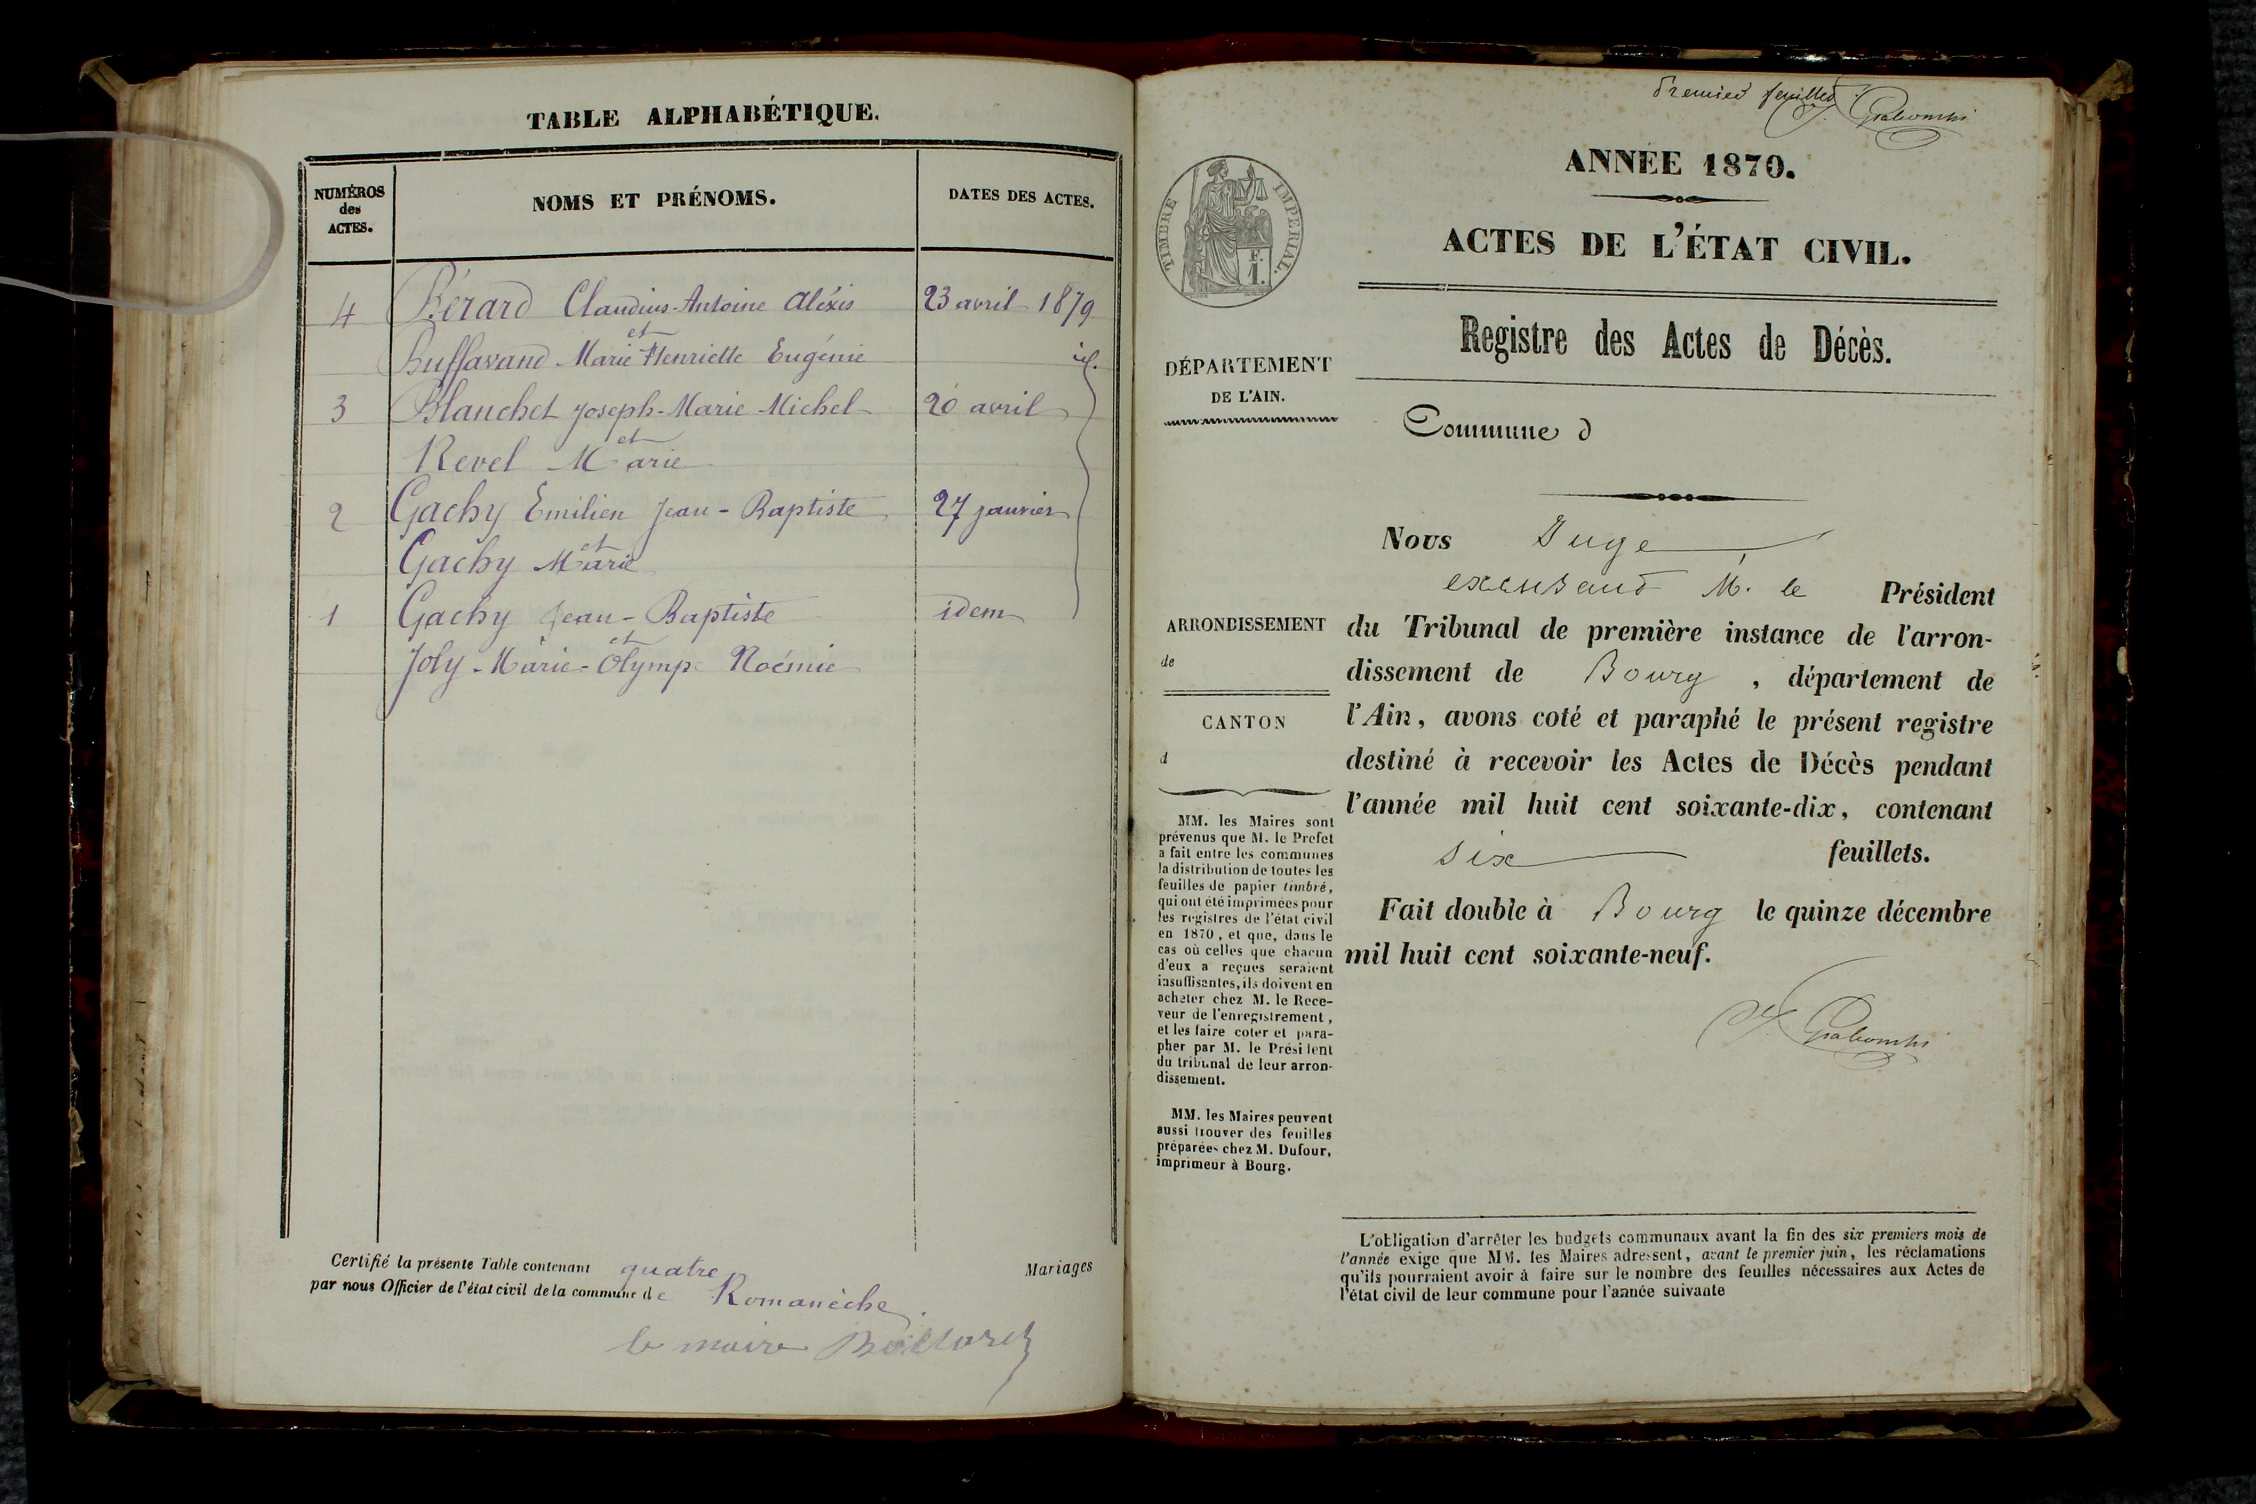 TABLE ALPHABÉTIQUE.
NUMÉROS
des
ACTES.
NOMS ET PRÉNOMS.
DATES DES ACTES.
4 Bérard Claudius-Antoine Aléxis 23 avril 1879
et
Buffavand Marie Henriette Eugénie id.
3 Blanchet Joseph-Marie Michel 20 avril
et
Revel Marie
2 Gachy Emilien Jean-Baptiste 27 janvier
et
Gachy Marie
1 Gachy Jean-Baptiste idem
et
Joly-Marie-Olympe Noémie
Certifié la présente Table contenant quatre Mariages
par nous Officier de l'état civil de la commune de Romanèche.
le maire
Premier feuillet
ANNÉE 1870.
ACTES DE L'ÉTAT CIVIL.
TIMBRE IMPERIAL.
F.
1.
Registre des Actes de Décès.
DÉPARTEMENT
DE L'AIN.
Commune d
ARRONDISSEMENT
de
CANTON
d
MM. les Maires sont
prévenus que M. le Prefet
a fait entre les communes
la distribution de toutes les
feuilles de papier timbré,
qui ont été imprimées pour
les registres de l'état civil
en 1870, et que, dans le
cas où celles que chacun
d'eux a reçues seraient
insuffisantes, ils doivent en
acheter chez M. le Rece-
veur de l'enregistrement,
et les faire coter et para-
pher par M. le Président
du tribunal de leur arron-
dissement.
MM. les Maires peuvent
aussi trouver des feuilles
préparées chez M. Dufour,
imprimeur à Bourg.
Nous Juge
excusant M. le Président
du Tribunal de première instance de l'arron-
dissement de Bourg, département de
l'Ain, avons coté et paraphé le présent registre
destiné à recevoir les Actes de Décès pendant
l'année mil huit cent soixante-dix, contenant
six feuillets.
Fait double à Bourg le quinze décembre
mil huit cent soixante-neuf.
L'obligation d'arrêter les budgets communaux avant la fin des six premiers mois de
l'année exige que MM. les Maires adressent, avant le premier juin, les réclamations
qu'ils pourraient avoir à faire sur le nombre des feuilles nécessaires aux Actes de
l'état civil de leur commune pour l'année suivante